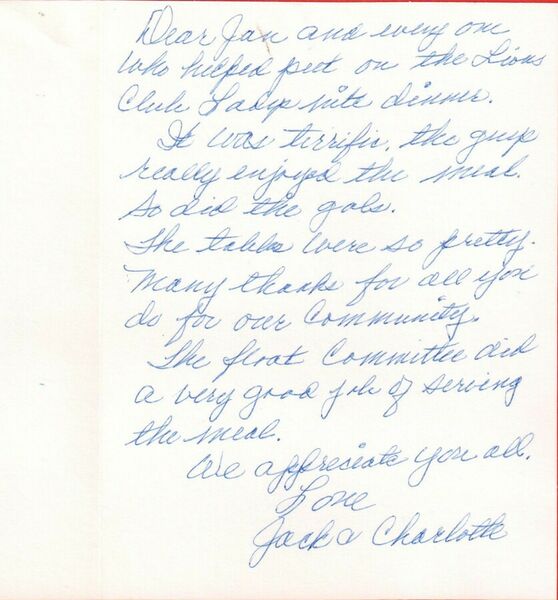 Dear Jan and every one
who helped put on the Lions
Club Ladys nite dinner.
It was terrific, the guys
really enjoyed the meal.
So did the gals.
The tables were so pretty.
Many thanks for all you
do for our Community.
The float Committee did
a very good job of serving
the meal.
We appreciate you all.
Love
Jack & Charlotte